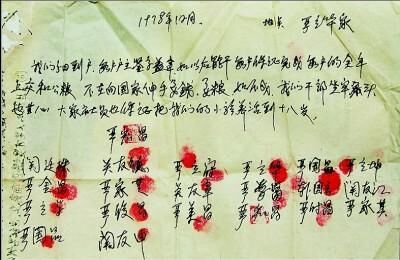 1978年12月 地点 严立华家
我们分田到户,每户户主签字盖章,如以后能干,每户保证完成每户的全年
上交和公粮,不在向国家伸手要钱要粮。如不成,我们干部坐牢杀头
也甘心,大家社员也保证把我们的小孩养活到十八岁。
严宏昌
关廷珠 关友德 严立符 严立华 严国昌 严立坤
严金昌 严家芝 关友章 严学昌 韩国云 关友江
严立学 严俊昌 严美昌 严宏昌 严付昌 严家其
严国品 关友申